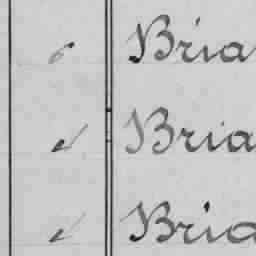 6 Bria
d Bria
d Bria